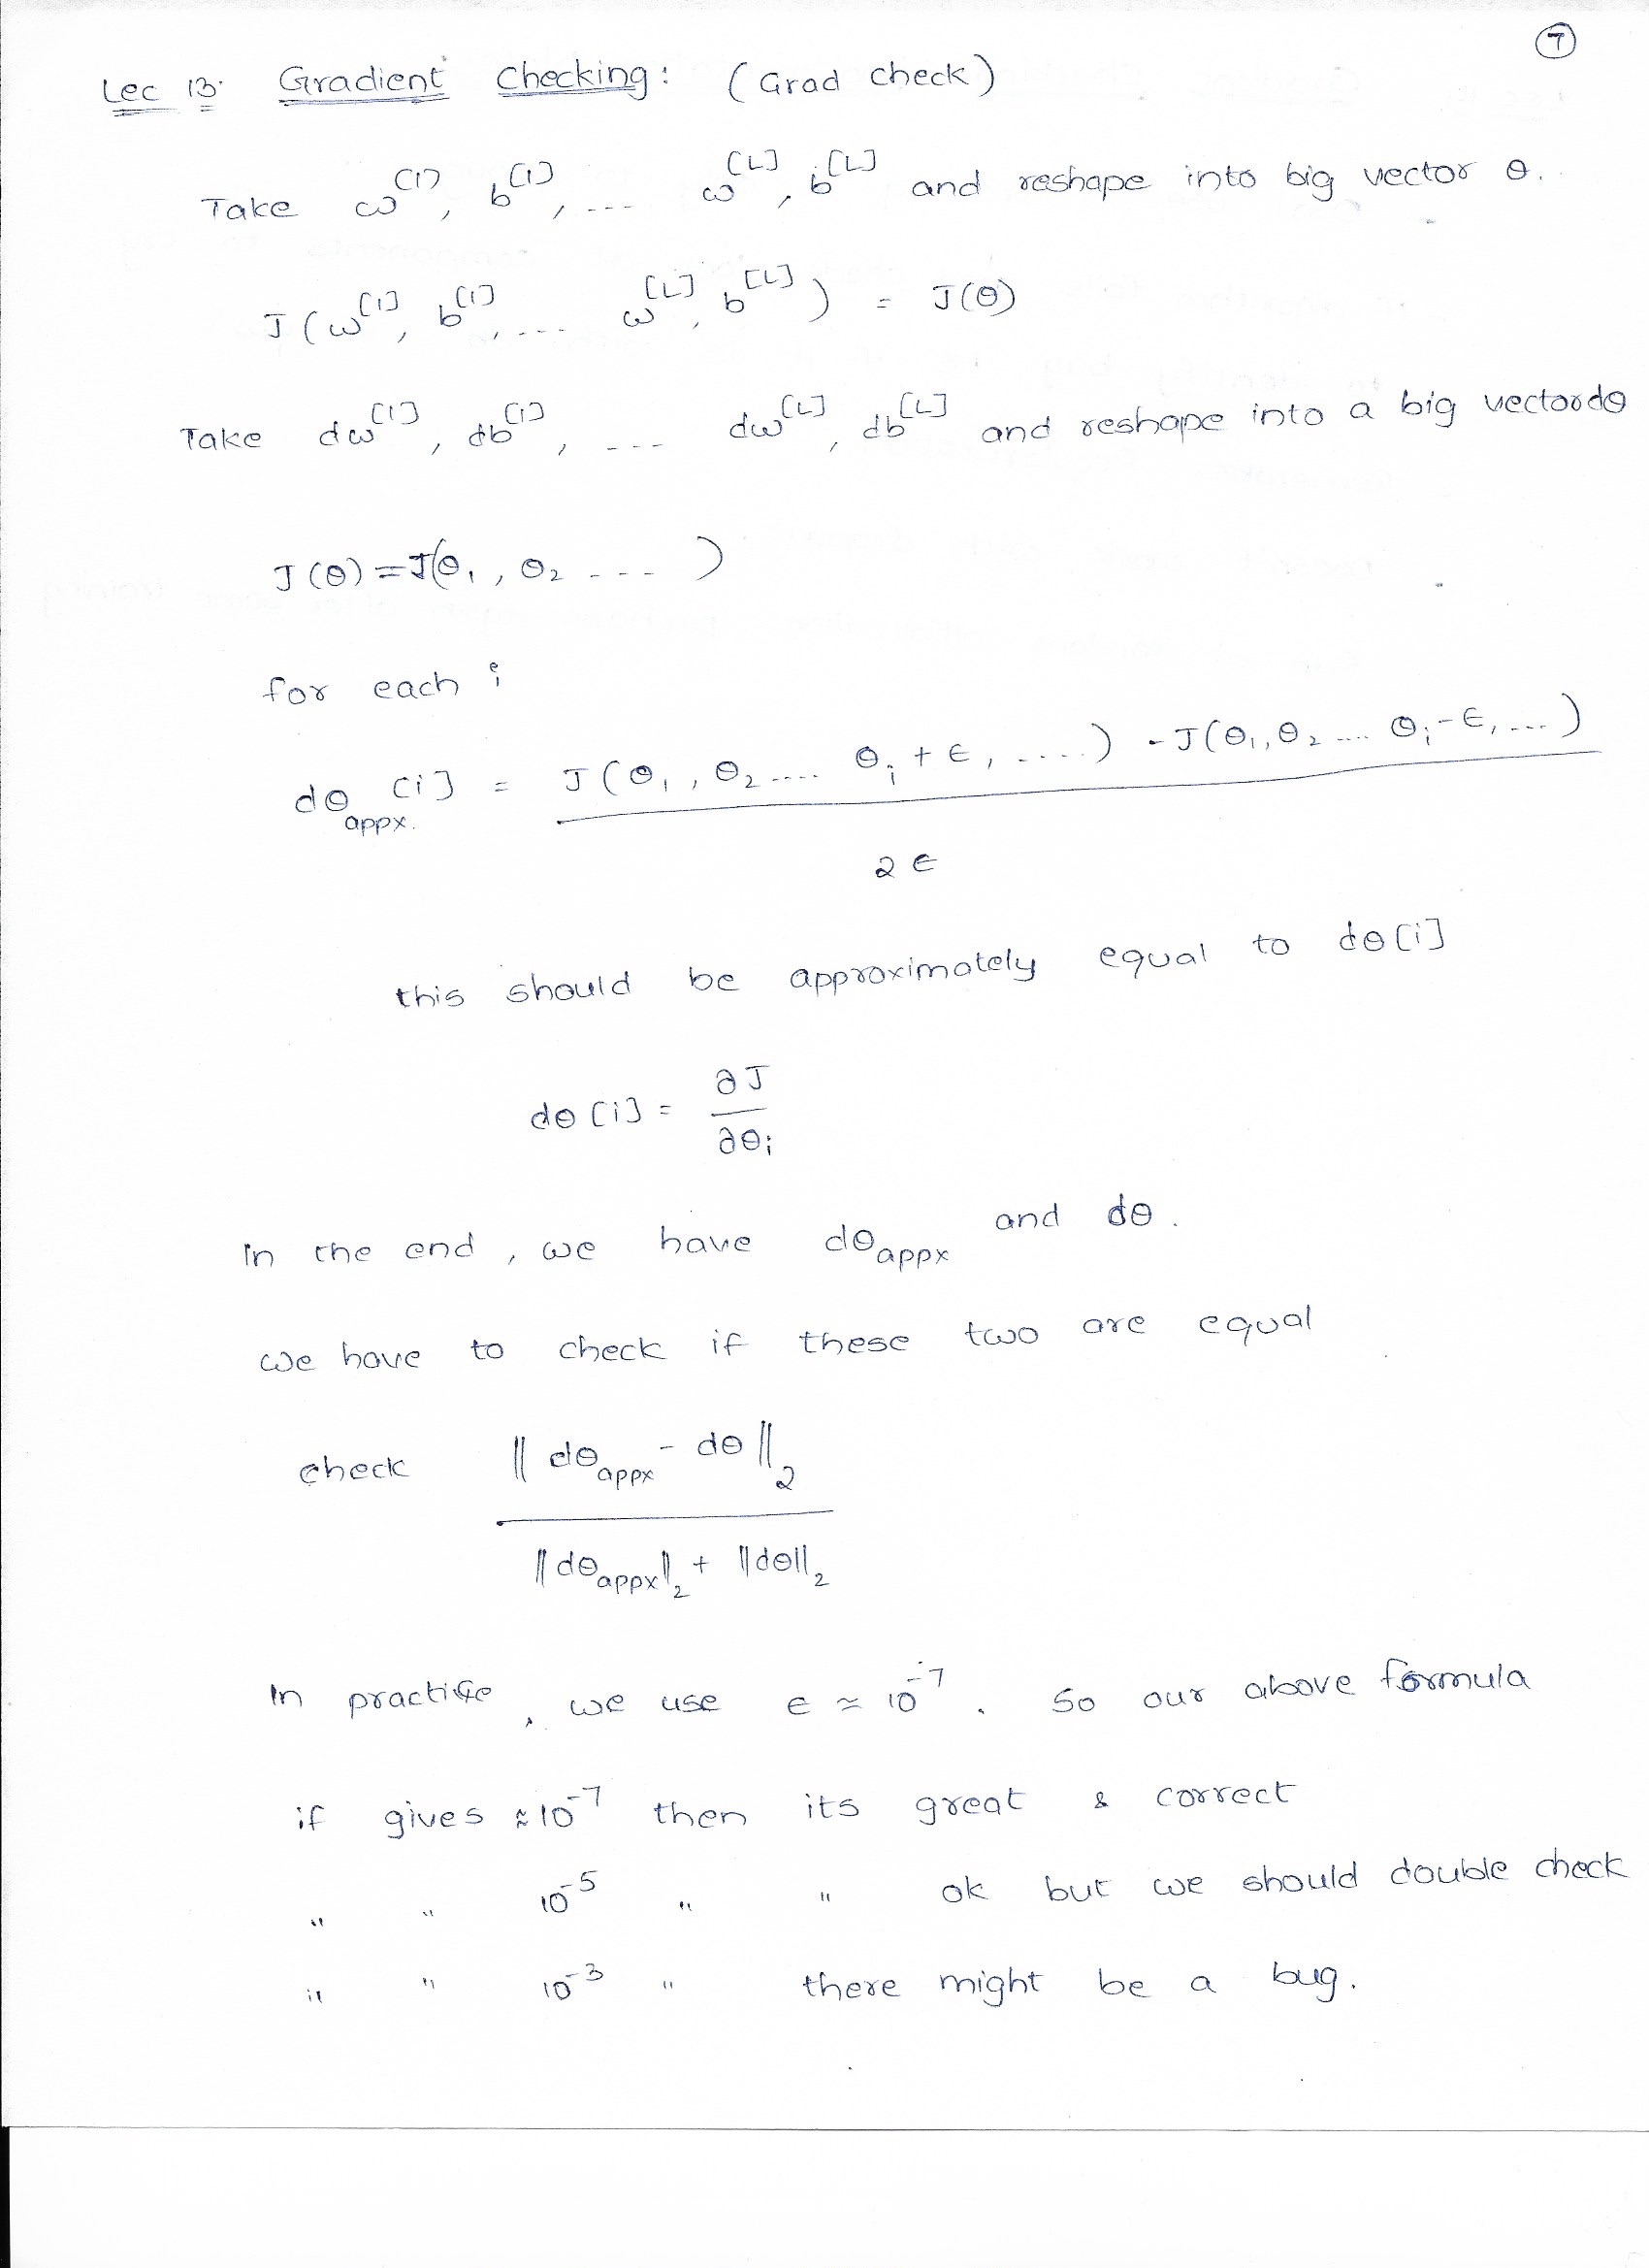 7
Lec 13: Gradient Checking: (Grad check)
Take ω^[1], b^[1], ---- ω^[L], b^[L] and reshape into big vector θ.
J(ω^[1], b^[1], ---- ω^[L], b^[L]) = J(θ)
Take dω^[1], db^[1], ---- dω^[L], db^[L] and reshape into a big vector dθ
J(θ) = J(θ₁, θ₂ ---- )
for each i
dθ_appx. [i] = J(θ₁, θ₂ .... θᵢ + ε, ....) - J(θ₁, θ₂ .... θᵢ - ε, ....)
2ε
this should be approximately equal to dθ[i]
dθ[i] = ∂J / ∂θᵢ
In the end, we have dθ_appx and dθ.
we have to check if these two are equal
check ‖dθ_appx - dθ‖₂
‖dθ_appx‖₂ + ‖dθ‖₂
In practice, we use ε ≈ 10^-7. So our above formula
if gives ≈ 10^-7 then its great & correct
" " 10^-5 " " ok but we should double check
" " 10^-3 " there might be a bug.